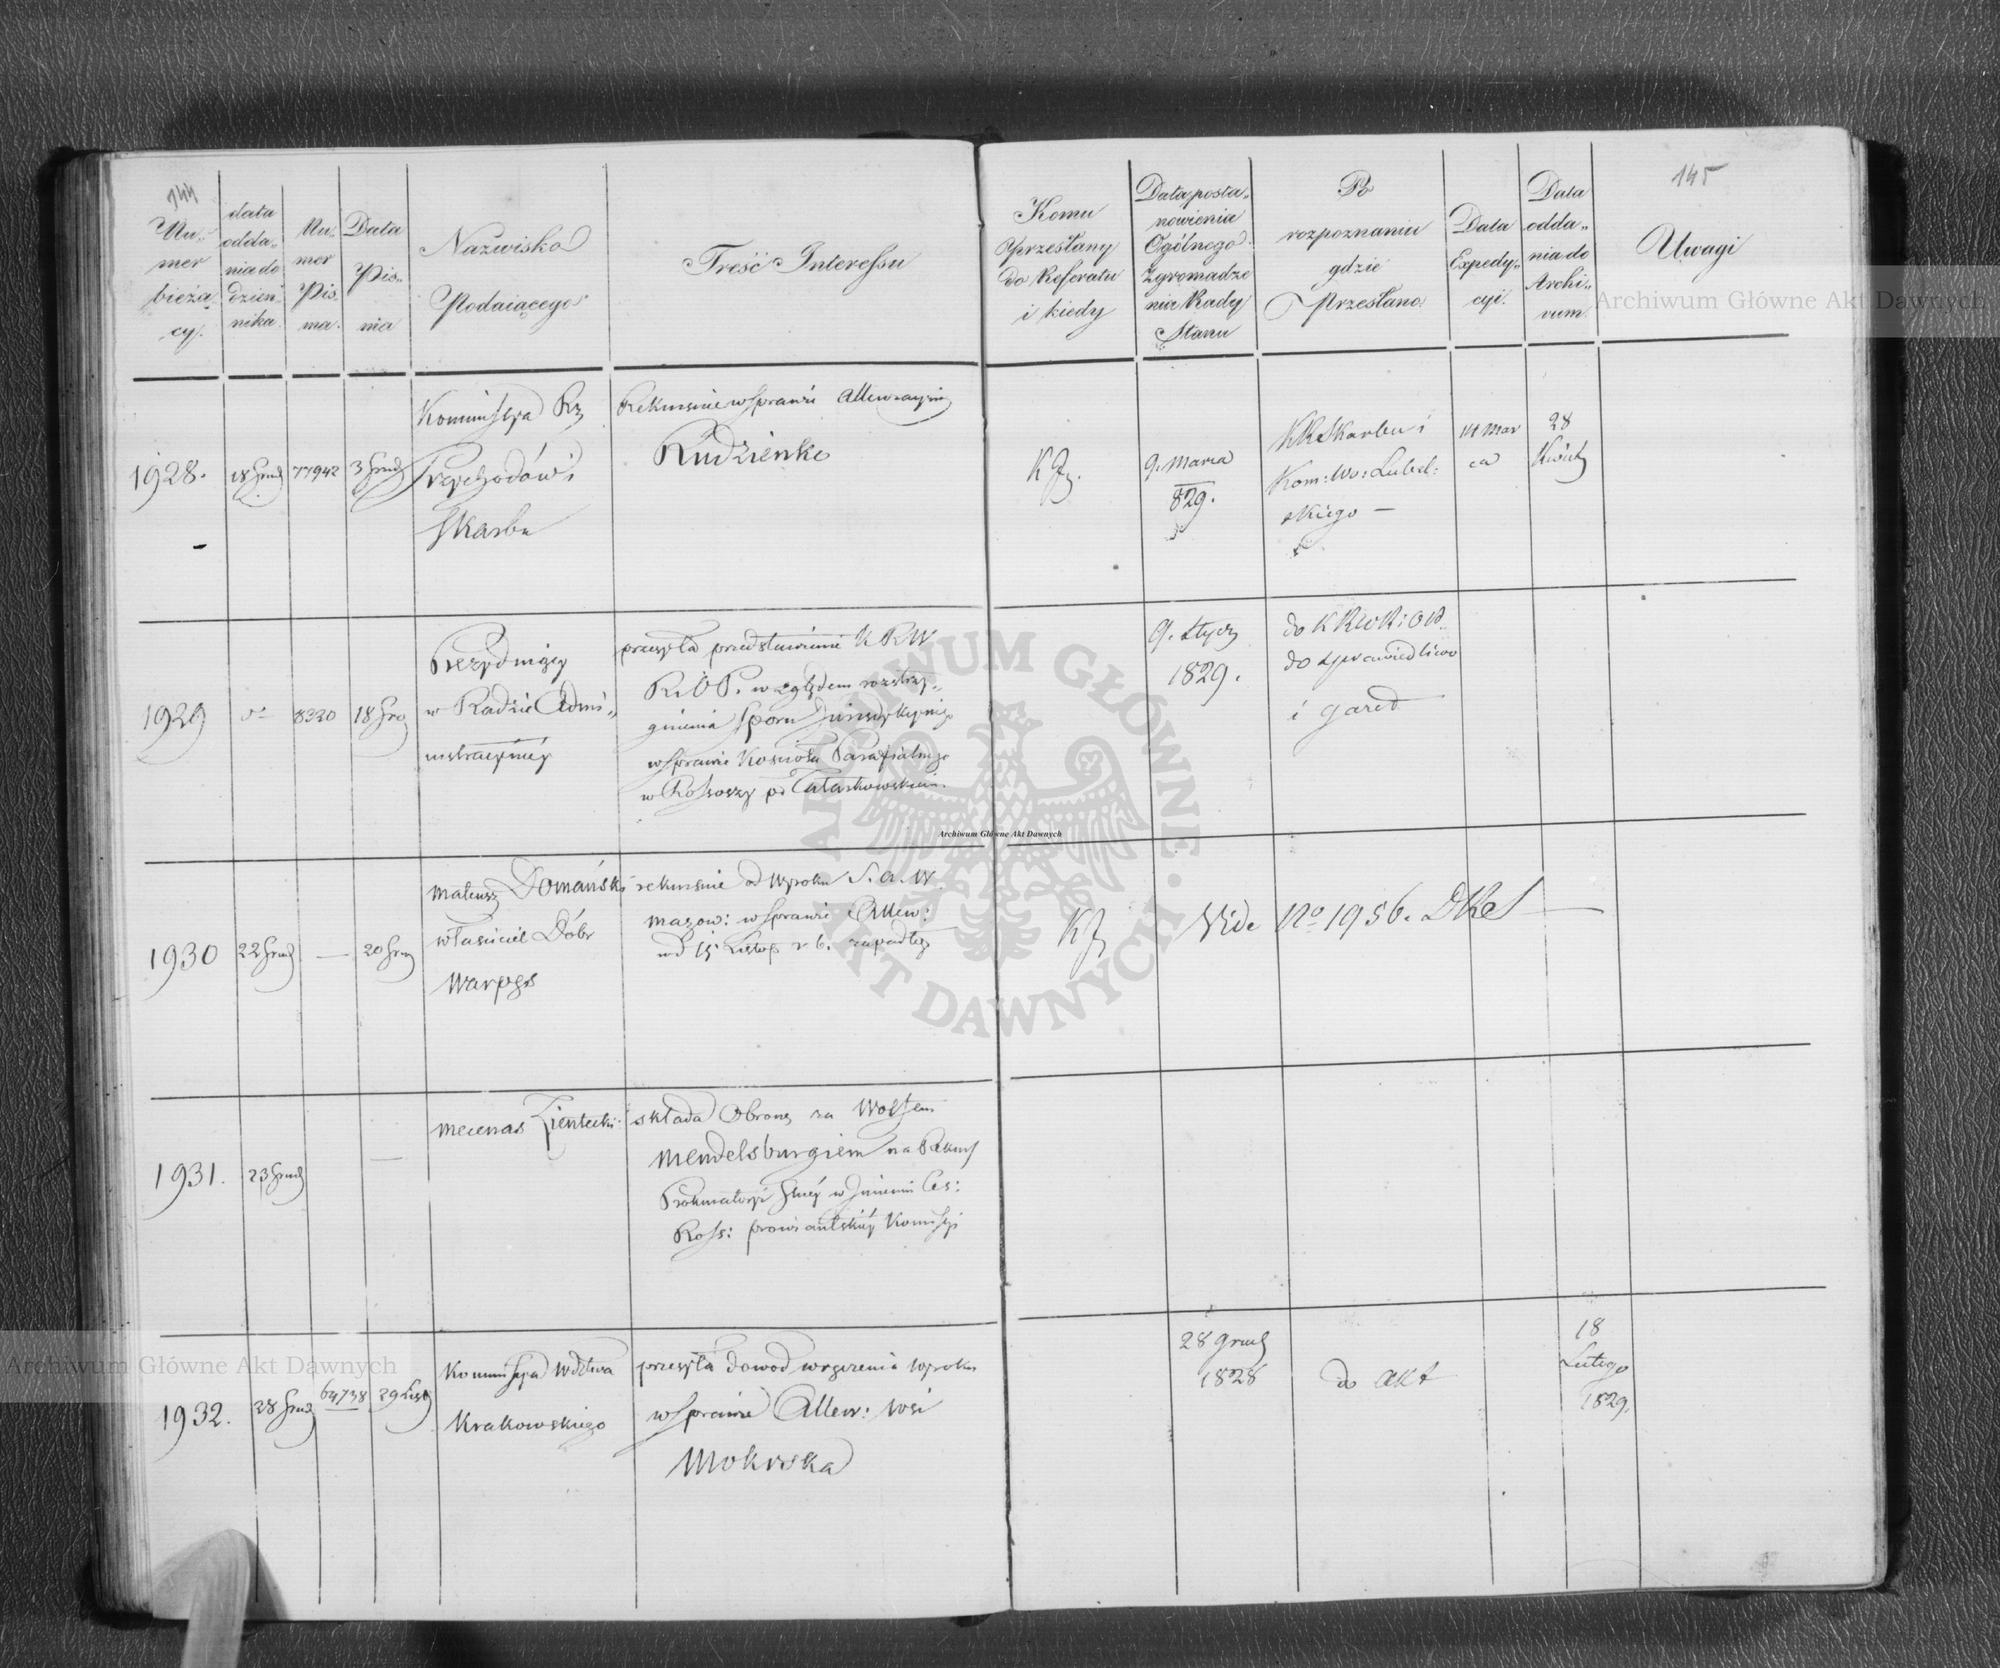 144
Nu-
mer
bieżą
cy.
data
odda-
nia do
dzien
nika.
Nu-
mer
Pis
ma.
Data
Pis-
ma
Nazwisko
Podaiącego
Treść Interessu
Komu
Przesłany
do Referatu
i kiedy
Data posta-
nowienia
Ogólnego
Zgromadze
nia Rady
Stanu
Po
rozpoznaniu
gdzie
Przesłano
Data
Expedy-
cyi.
Data
odda-
nia do
Archi-
vum
145
Uwagi
1928.
18 Grud
77942
3 Grud
Kommissya Rz
Przychodów i
Skarbu
Rekursie w Sprawie Allewiacyiney
Rudzienko
9. Marca
829.
KRSkarbu i
Kom: Wo: Lubel:
skiego —
14 Mar
ca
28
Kwiet
1929
8320
18 Gru
Prezyduiący
w Radzie Admi-
nistracyiney
przesyła przedstawienie KRW
R. i O P. względem rozstrzy-
gnienia Sporu Jurisdykcyinego
w Sprawie Kościoła Parafialnego
w Rossoszy
9. Stycz
1829.
do Sprawiedliwo
1930
22 Grud
—
20 Gru
Mateusz Domański
właściciel Dóbr
rekursie od Wyroku S. a. W
Mazow: w Sprawie Allew:
od 15 Listop r b. zapadłego
Vide No 1956. DRes —
1931.
23 Grud
—
Mecenas Zientecki
składa Obronę za Wolfem
Mendelsburgiem na Rekurs
Prokuratoryi Gnéy w Jmieniu Ces:
Ross: prowiantskiey Komissyi
1932.
28 Grud
64738
29 List
Kommissya Wdztwa
Krakowskiego
przesyła dowod wręczenia Wyroku
w Sprawie Allew: Wsi
Mokrska
28 Grud
1828
do Akt
18
Lutego
1829.
Archiwum Główne Akt Dawnych
Archiwum Główne Akt Dawnych
Archiwum Główne Akt Dawnych
ARCHIWUM GŁÓWNE AKT DAWNYCH